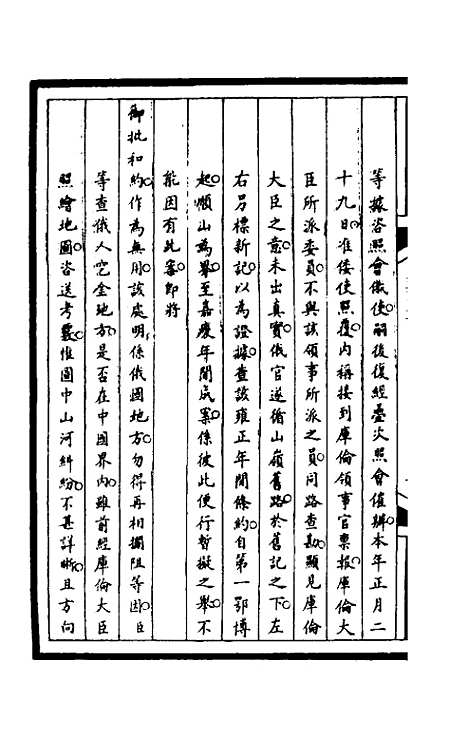 等據咨照會俄使嗣後復經疊次照會催辦本年正月二
十九日准倭使照覆內稱接到庫倫領事官稟報庫倫大
臣所派委員不與該領事所派之員同路查勘顯見庫倫
大臣之意未出真實俄官遂循山嶺舊路於舊記之下左
右另標新記以為證據查該雍正年間條約自第一鄂博
起順山為界至嘉慶年間成案係彼此便行暫擬之舉不
能因有此案即將
御批和約作為無用該處明係俄國地方勿得再相攔阻等因臣
等查俄人空全地方是否在中國界內雖前經庫倫大臣
照繪地圖咨送考覈惟圖中山河糾紛不甚詳晰且方向